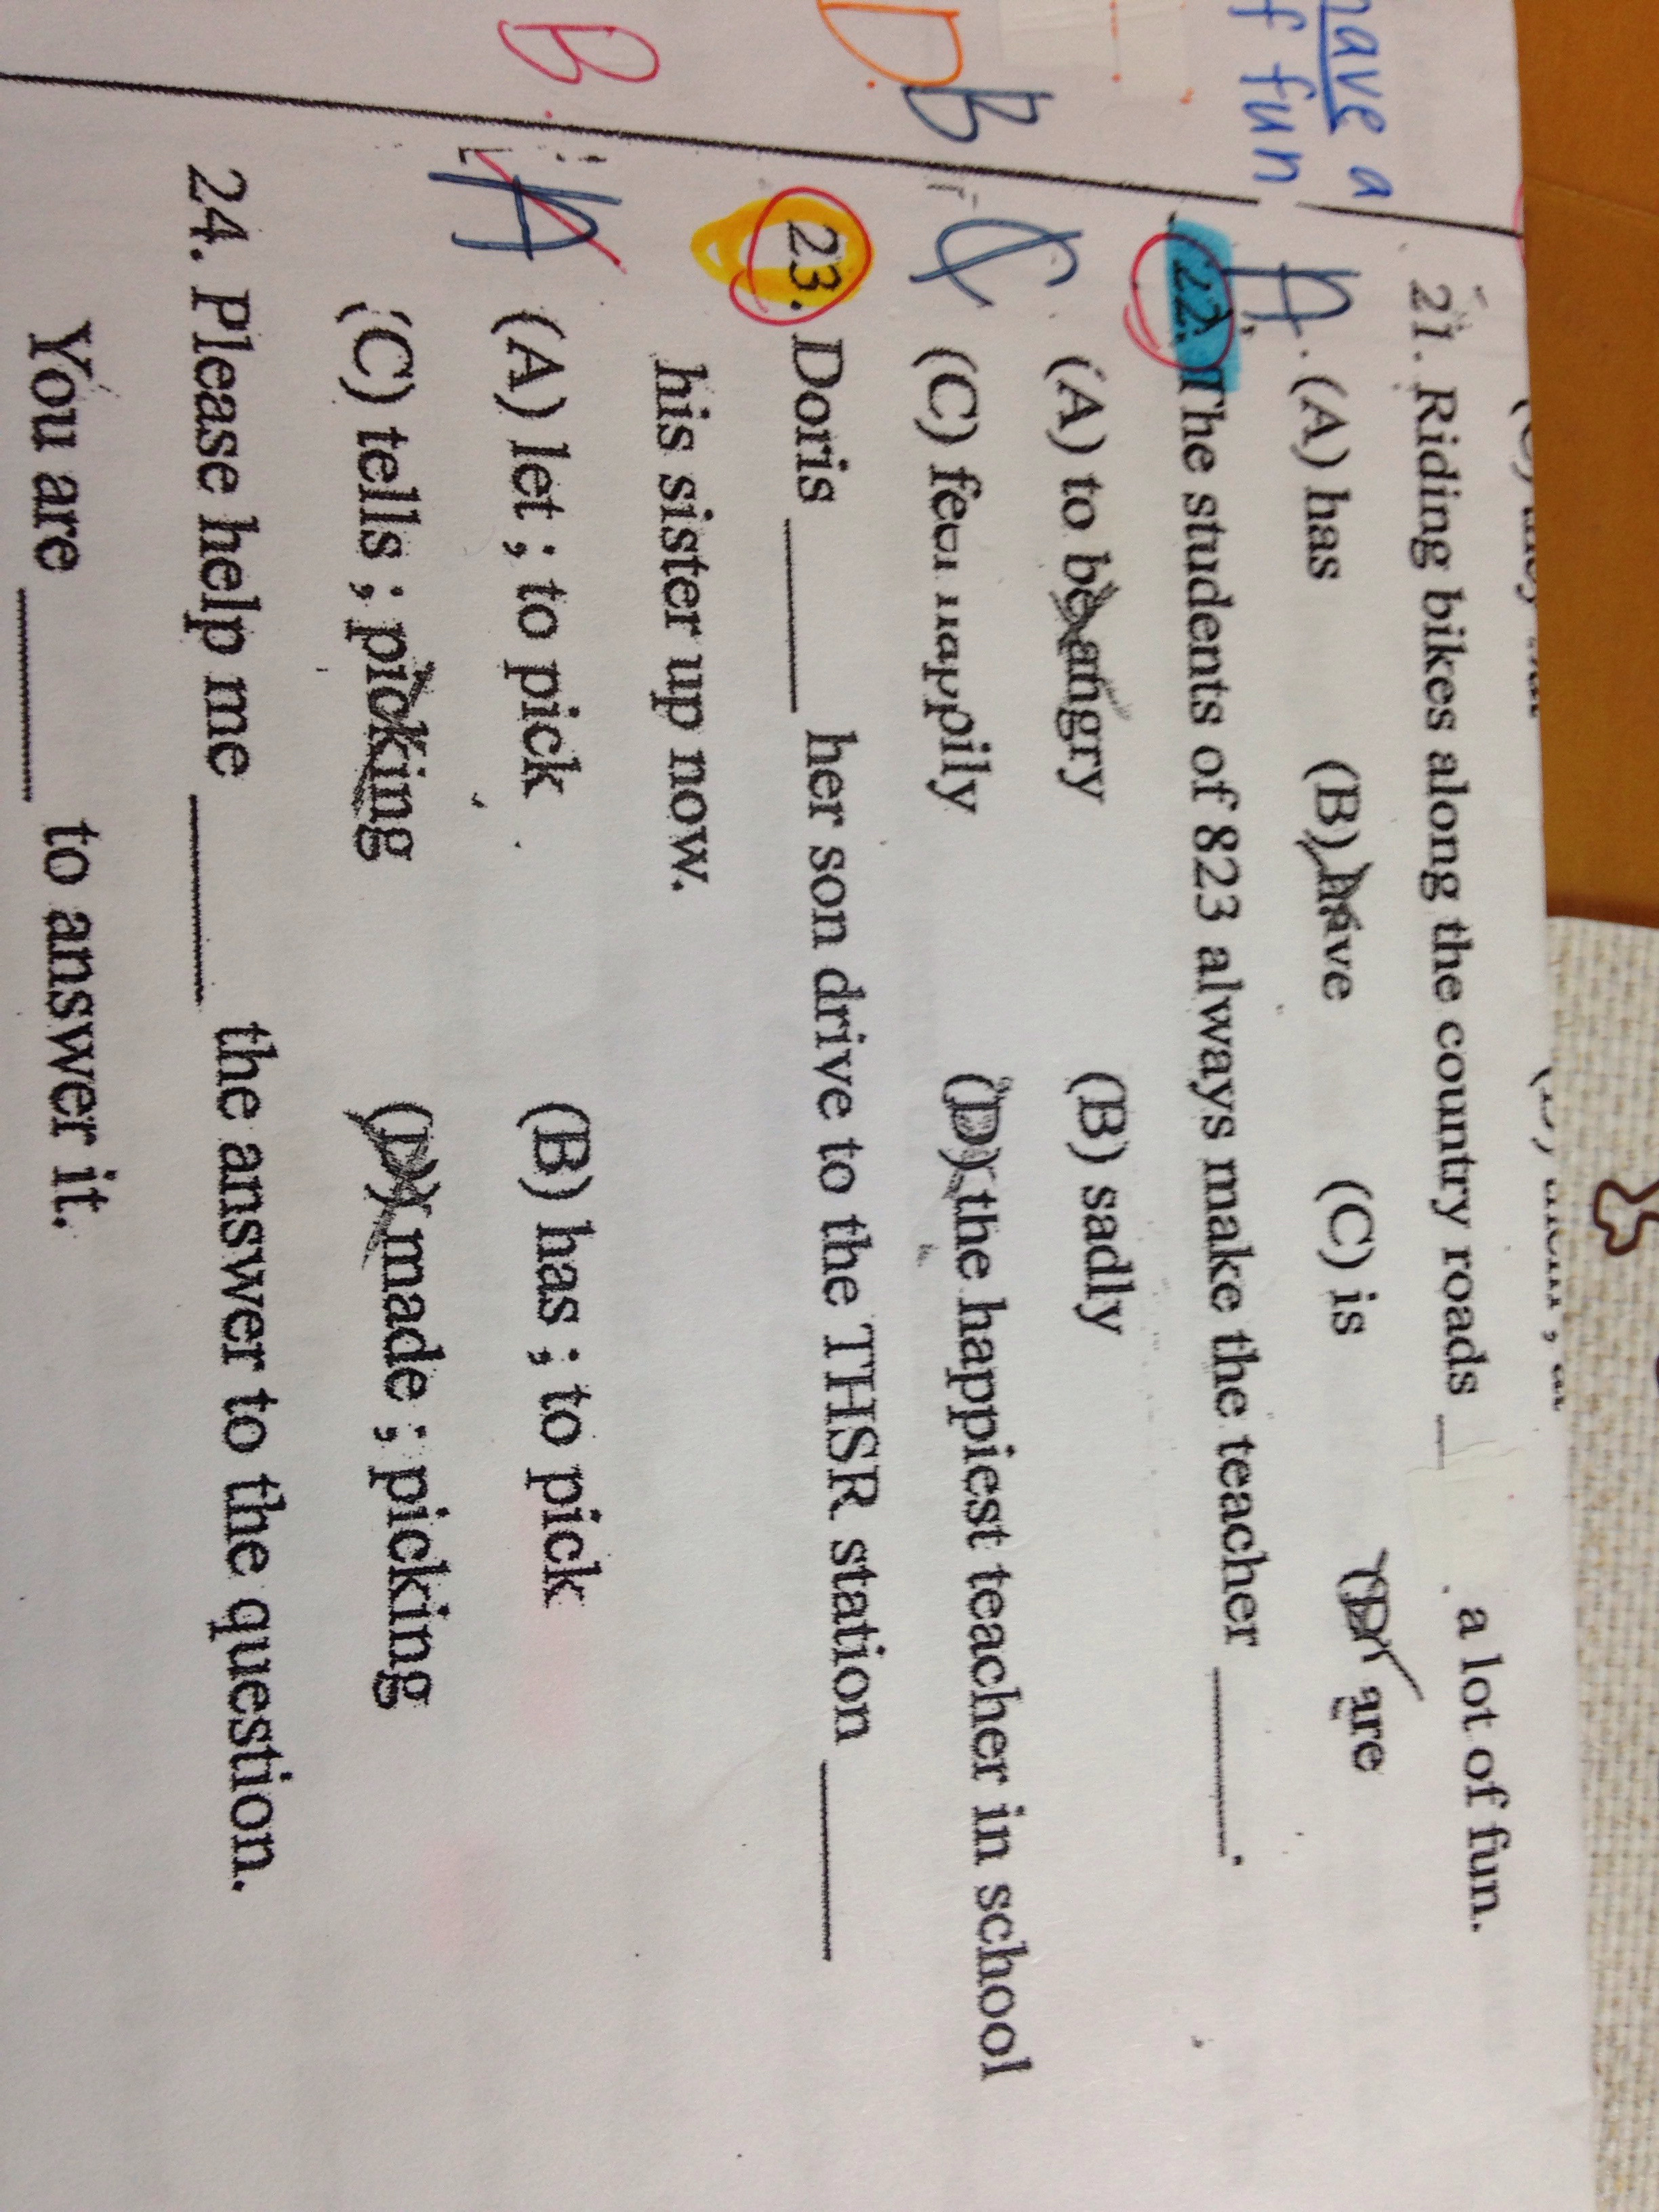 have a
f fun
21. Riding bikes along the country roads a lot of fun.
A
(A) has (B) have (C) is (D) are
22. The students of 823 always make the teacher ______.
(A) to be angry (B) sadly
D. B C
(C) feel happily (D) the happiest teacher in school
23. Doris ______ her son drive to the THSR station ______
his sister up now.
B. A
(A) let ; to pick (B) has ; to pick
(C) tells ; picking (D) made ; picking
24. Please help me ______ the answer to the question.
You are ______ to answer it.